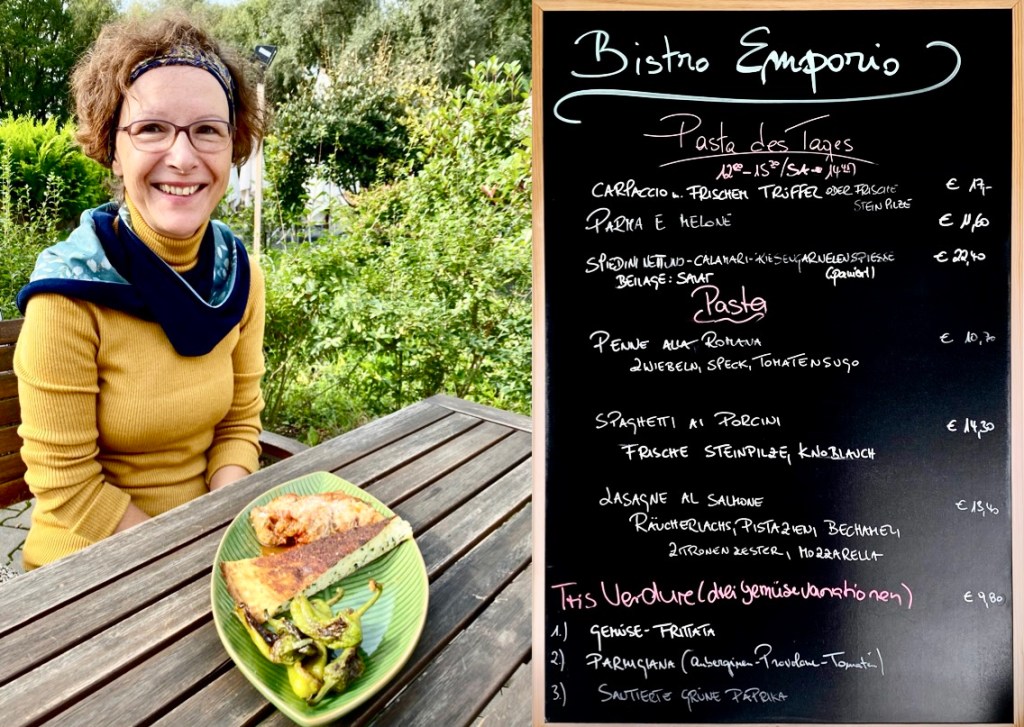 Bistro Emporio
Pasta des Tages
12⁰⁰-15³⁰/SA
CARPACCIO m. FRISCHEM TRÜFFEL ODER FRISCHE € 17,-
STEINPILZE
PARMA E MELONE € 11,60
SPIEDINI CALAMARI-RIESENGARNELENSPIESSE € 22,40
BEILAGE: SALAT (paniert)
Pasta
PENNE ALLA ROMANA € 10,70
ZWIEBELN, SPECK, TOMATENSUGO
SPAGHETTI AI PORCINI € 14,30
FRISCHE STEINPILZE, KNOBLAUCH
LASAGNE AL SALMONE € 13,40
RÄUCHERLACHS, PISTAZIEN, BECHAMEL,
ZITRONENZESTER, MOZZARELLA
Tris Verdure (drei Gemüsevariationen) € 9,80
1.) GEMÜSE-FRITTATA
2) PARMIGIANA (Auberginen-Provolone-Tomaten)
3.) SAUTIERTE GRÜNE PAPRIKA